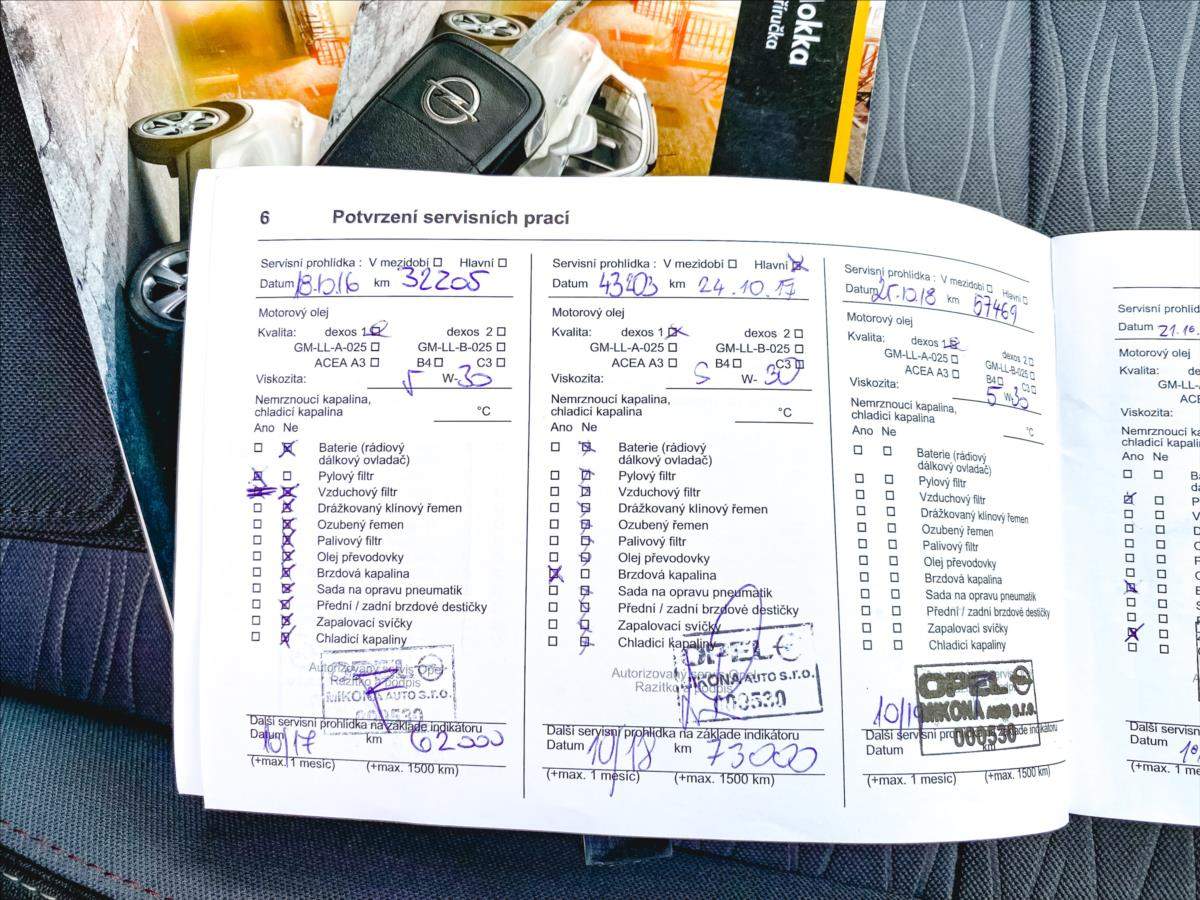 lokka
říručka
6 Potvrzení servisních prací
Servisní prohlídka : V mezidobí Hlavní
Datum 18.10.16 km 32205
Motorový olej
Kvalita: dexos 1 dexos 2
GM-LL-A-025 GM-LL-B-025
ACEA A3 B4 C3
Viskozita: 5 W- 30
Nemrznoucí kapalina,
chladicí kapalina °C
Ano Ne
Baterie (rádiový
dálkový ovladač)
Pylový filtr
Vzduchový filtr
Drážkovaný klínový řemen
Ozubený řemen
Palivový filtr
Olej převodovky
Brzdová kapalina
Sada na opravu pneumatik
Přední / zadní brzdové destičky
Zapalovací svíčky
Chladicí kapaliny
Autorizovaný servis Opel
Razítko a podpis
OPEL
NIKONA AUTO S.R.O.
000530
Další servisní prohlídka na základě indikátoru
Datum 10/17 km 62000
(+max. 1 měsíc) (+max. 1500 km)
Servisní prohlídka : V mezidobí Hlavní
Datum 43203 km 24.10.17
Motorový olej
Kvalita: dexos 1 dexos 2
GM-LL-A-025 GM-LL-B-025
ACEA A3 B4 C3
Viskozita: 5 W- 30
Nemrznoucí kapalina,
chladicí kapalina °C
Ano Ne
Baterie (rádiový
dálkový ovladač)
Pylový filtr
Vzduchový filtr
Drážkovaný klínový řemen
Ozubený řemen
Palivový filtr
Olej převodovky
Brzdová kapalina
Sada na opravu pneumatik
Přední / zadní brzdové destičky
Zapalovací svíčky
Chladicí kapaliny
Autorizovaný
Razítko a podpis
OPEL
NIKONA AUTO S.R.O.
000530
Další servisní prohlídka na základě indikátoru
Datum 10/18 km 73000
(+max. 1 měsíc) (+max. 1500 km)
Servisní prohlídka : V mezidobí Hlavní
Datum 25.10.18 km 57469
Motorový olej
Kvalita: dexos 1 dexos 2
GM-LL-A-025 GM-LL-B-025
ACEA A3 B4 C3
Viskozita: 5 W- 30
Nemrznoucí kapalina,
chladicí kapalina °C
Ano Ne
Baterie (rádiový
dálkový ovladač)
Pylový filtr
Vzduchový filtr
Drážkovaný klínový řemen
Ozubený řemen
Palivový filtr
Olej převodovky
Brzdová kapalina
Sada na opravu pneumatik
Přední / zadní brzdové destičky
Zapalovací svíčky
Chladicí kapaliny
OPEL
NIKONA AUTO S.R.O.
000530
10/19
Další servisní prohlídka na základě indikátoru
Datum km
(+max. 1 měsíc) (+max. 1500 km)
Servisní prohlíd
Datum 21.10.
Motorový olej
Kvalita: de
GM-L
ACE
Viskozita:
Nemrznoucí ka
chladicí kapalin
Ano Ne
Ba
dá
P
V
D
Další servisní
Datum
(+max. 1 mě